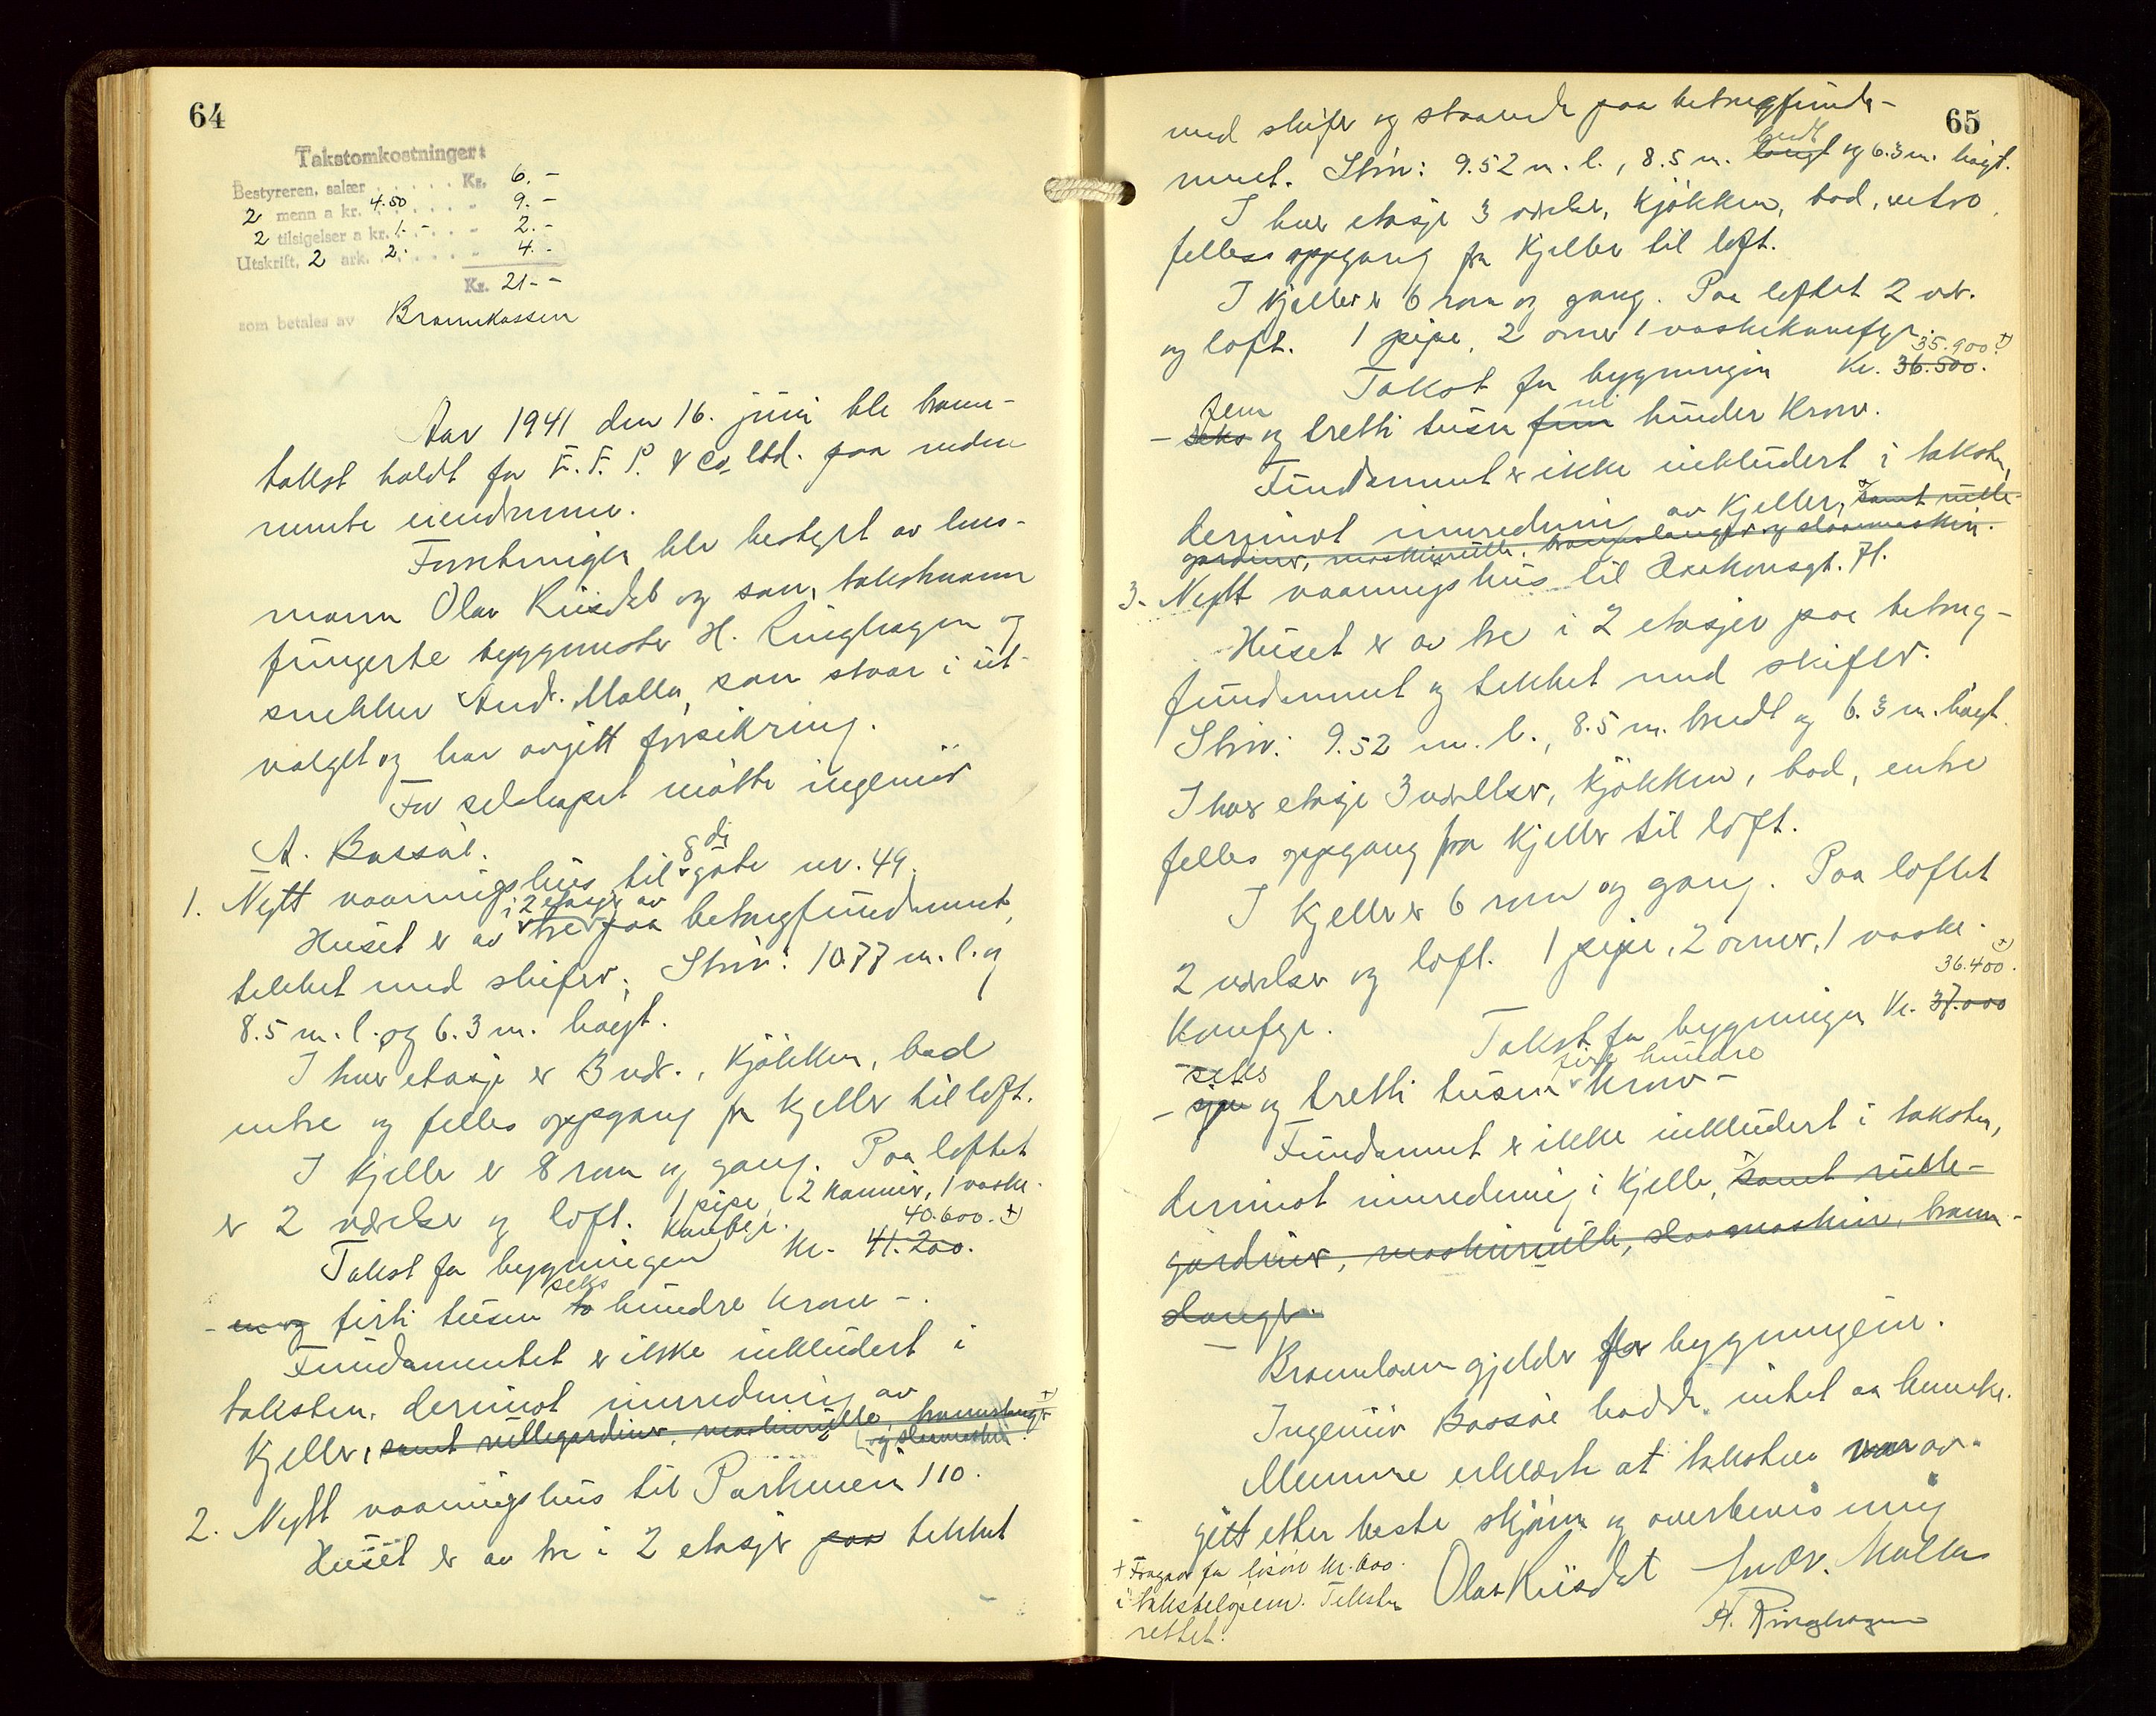 64
Takstomkostninger:
Bestyreren, salær . . . . . Kr. 6.-
2 menn a kr. 4.50 . . . . „ 9.-
2 tilsigelser a kr. 1.- . . „ 2.-
Utskrift, 2 ark. 2.- . . . „ 4.-
Kr. 21.-
som betales av Brannkassen
Aar 1941 den 16. juni ble brann-
takst holdt for E. F. P. & Co. Ltd. paa neden
nevnte eiendommer.
Forretningen ble bestyrt av lens-
mann Olav Kiisdal og som takstmann
fungerte byggmester H. Ringhagen og
snekker Andr. Malla, som staar i ut-
valget og har avgitt forsikring.
For selskapet møtte ingeniør
A. Bassøe.
1. Nytt vaaningshus til 8de gate nr. 49.
Huset er av i 2 etasjer av tre paa betongfundament,
tekket med skifer. Stør: 10.77 m. l. og
8.5 m. l. og 6.3 m. høgt.
I hver etasje er 3 vær., kjøkken, bad
entre og felles oppgang fr kjeller til loft.
I kjeller er 8 rom og gang. Paa loftet
er 2 værelser og loft. 1 pipe, 2 kaminer, 1 vaske-
kumfyr. 40.600. +)
Takst for bygningen Kr. 41.200.
- en og firti tusen seks to hundre kroner -.
Fundamentet er ikke inkludert i
taksten, derimot innredning av
kjeller, samt rullegardiner, maskinrulle, brannslanger +)
og slaamaskin.
2. Nytt vaaningshus til Parkveien 110.
Huset er av tre i 2 etasjer paa tekket
65
med skifer og staaende paa betongfunda-
ment. Stør: 9.52 m. l., 8.5 m. bredt langt og 6.3 m. høgt.
I hver etasje 3 værelser, kjøkken, bad, entre
felles oppgang fra kjeller til loft.
I kjeller er 6 rom og gang. Paa loftet 2 vær.
og loft. 1 pipe, 2 ovner 1 vaskekumfyr.
35.900. +)
Takst for bygningen Kr. 36.500.
- fem seks og tretti tusen ni fem hundre kroner.
Fundament er ikke inkludert i taksten,
derimot innredning av kjeller, +) samt rulle-
gardiner, maskinrulle, brannslanger og slaamaskin.
3. Nytt vaaningshus til Haakonsgt. 71.
Huset er av tre i 2 etasjer paa betong-
fundament og tekket med skifer.
Stør: 9.52 m. l., 8.5 m. bredt og 6.3 m. høgt.
I hver etasje 3 værelser, kjøkken, bad, entre
felles oppgang fra kjeller til loft.
I kjeller er 6 rom og gang. Paa loftet
2 værelser og loft. 1 pipe, 2 ovner, 1 vaske-
kumfyr. 36.400. +)
Takst for bygningen Kr. 37.000
- seks sju og tretti tusen fire hundre kroner -
Fundament er ikke inkludert i taksten,
derimot innredning i kjeller, +) samt rulle-
gardiner, maskinrulle, slaamaskin, brann-
slanger.
Brannloven gjelder for bygningene.
Ingeniør Bassøe hadde intet aa bemerke.
Mennene erklærte at taksten var av-
gitt etter beste skjønn og overbevisning
Olav Kiisdal Andr. Malla
H. Ringhagen
+ Fragaar for løsøre kr. 600.
i takstbeløpene. Taksten
rettet.